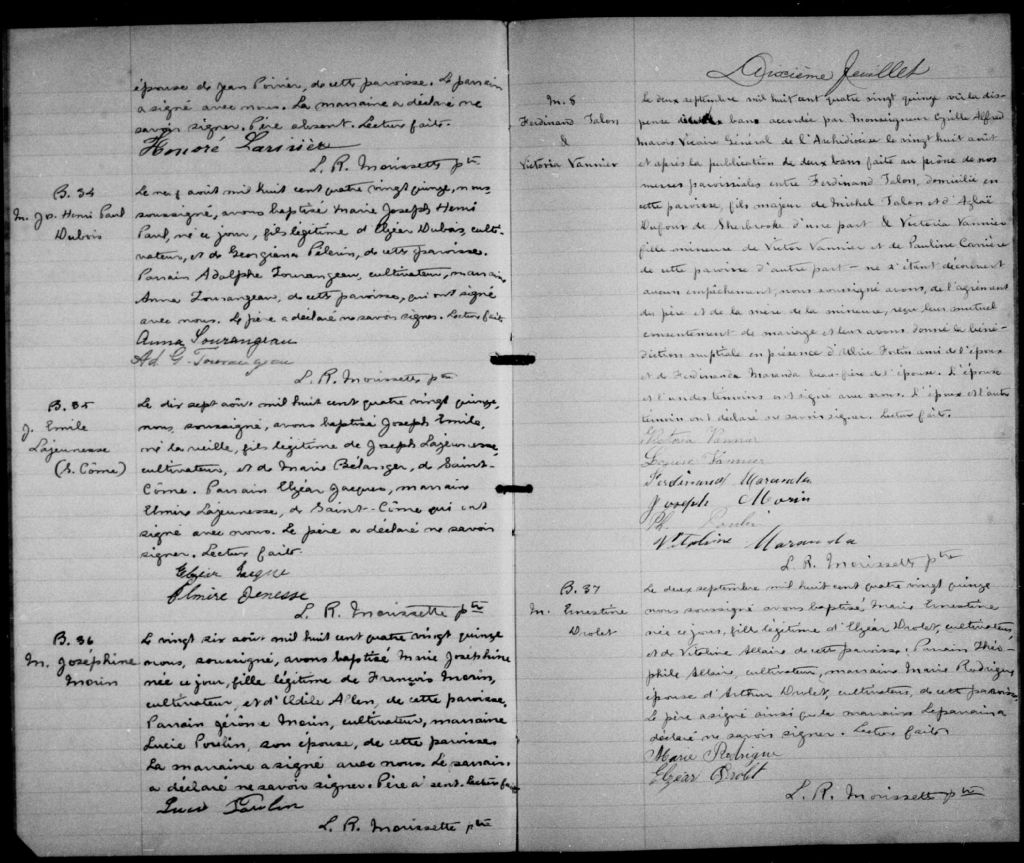 épouse de Jean Poirier, de cette paroisse. Le parrain
a signé avec nous. La marraine a déclaré ne
savoir signer. Père absent. Lecture faite.
Honoré
L. R. Morissette ptre
B. 34
M. Jos. Henri Paul
Dubois
Le neuf août mil huit cent quatre vingt quinze, nous
soussigné, avons baptisé Marie Joseph Henri
Paul, né ce jour, fils légitime d'Elzéar Dubois, culti-
vateur, et de Georgiana Pélerin, de cette paroisse.
Parrain Adolphe Tourangeau, cultivateur, marraine
Anna Tourangeau, de cette paroisse, qui ont signé
avec nous. Le père a déclaré ne savoir signer. Lecture faite
Anna Tourangeau
Ad. G. Tourangeau
L. R. Morissette ptre
B. 35
J. Emile
Lajeunesse
(S. Côme)
Le dix sept août mil huit cent quatre vingt quinze,
nous, soussigné, avons baptisé Joseph Emile,
né la veille, fils légitime de Joseph Lajeunesse,
cultivateur, et de Marie Bélanger, de Saint-
Côme. Parrain Elzéar Jacques, marraine
Elmire Lajeunesse, de Saint-Côme qui ont
signé avec nous. Le père a déclaré ne savoir
signer. Lecture faite
Elzéar
Elmire Jenesse
L. R. Morissette ptre
B. 36
M. Joséphine
Morin
Le vingt six août mil huit cent quatre vingt quinze
nous, soussigné, avons baptisé Marie Joséphine
née ce jour, fille légitime de François Morin,
cultivateur, et d'Odile Allen, de cette paroisse.
Parrain Gérôme Morin, cultivateur, marraine
Lucie Poulin, son épouse, de cette paroisse
La marraine a signé avec nous. Le parrain
a déclaré ne savoir signer. Père absent. Lecture faite
Luce Poulin
L. R. Morissette ptre
Deuxième Feuillet
M. 8
Ferdinand Talon
&
Victoria Vannier
Le deux septembre mil huit cent quatre vingt quinze vu la dis-
pense de bans accordée par Monseigneur Cyrille Alfred
Marois Vicaire Général de l'Archidiocèse le vingt huit août
et après la publication de deux bans faite au prône de nos
messes paroissiales entre Ferdinand Talon, domicilié en
cette paroisse, fils majeur de Michel Talon et d'Aglaé
Dufour de Sherbrooke d'une part & Victoria Vannier
fille mineure de Victor Vannier et de Pauline Carrière
de cette paroisse d'autre part – ne s'étant découvert
aucun empêchement, nous soussigné avons, de l'agrément
du père et de la mère de la mineure, reçu leur mutuel
consentement de mariage et leur avons donné la béné-
diction nuptiale en présence d'Ulric Fortin ami de l'époux
et de Ferdinand Maranda beau-frère de l'épouse. L'épouse
et l'un des témoins ont signé avec nous. L'époux et l'autre
témoin ont déclaré ne savoir signer. Lecture faite.
Victoria Vannier
Vannier
Ferdinand Maranda
Joseph Morin
Ph. Poulin
Vitaline Maranda
L. R. Morissette ptre
B. 37
M. Ernestine
Drolet
Le deux septembre mil huit cent quatre vingt quinze
nous soussigné avons baptisé Marie Ernestine
née ce jour, fille légitime d'Elzéar Drolet, cultivateur,
et de Vitaline Allaire de cette paroisse. Parrain Théo-
phile Allaire, cultivateur, marraine Marie Rodrigue,
épouse d'Arthur Drolet, cultivateur, de cette paroisse,
Le père a signé ainsi que la marraine. Le parrain a
déclaré ne savoir signer. Lecture faite
Marie Rodrigue
Elzéar Drolet
L. R. Morissette ptre